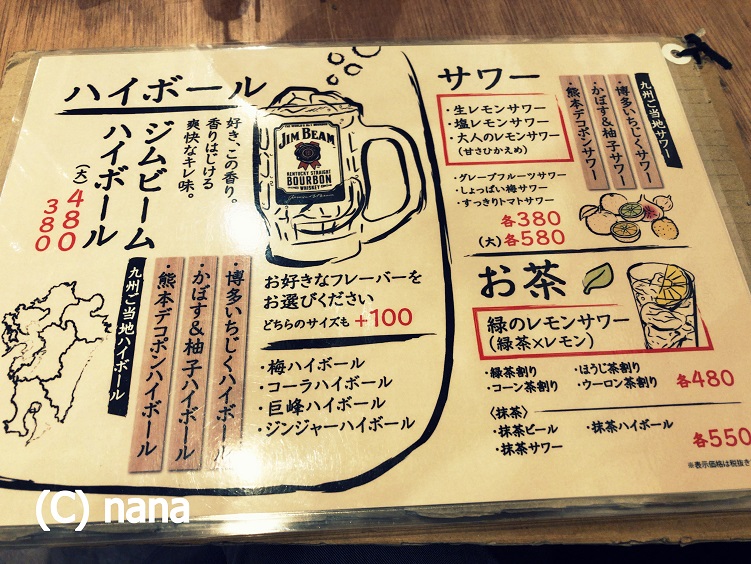 ハイボール
好き、この香り。
香りはじける
爽快なキレ味。
ジムビーム
ハイボール
380
(大)480
JIM BEAM
KENTUCKY STRAIGHT
BOURBON
WHISKEY
九州ご当地ハイボール
・博多いちじくハイボール
・かぼす&柚子ハイボール
・熊本デコポンハイボール
お好きなフレーバーを
お選びください
どちらのサイズも +100
・梅ハイボール
・コーラハイボール
・巨峰ハイボール
・ジンジャーハイボール
サワー
・生レモンサワー
・塩レモンサワー
・大人のレモンサワー
(甘さひかえめ)
・グレープフルーツサワー
・しょっぱい梅サワー
・すっきりトマトサワー
各380
(大)各580
九州ご当地サワー
・博多いちじくサワー
・かぼす&柚子サワー
・熊本デコポンサワー
お茶
緑のレモンサワー
(緑茶×レモン)
・緑茶割り ・ほうじ茶割り
・コーン茶割り ・ウーロン茶割り 各480
〈抹茶〉
・抹茶ビール ・抹茶ハイボール
・抹茶サワー 各550
※表示価格は税抜き
(C) nana